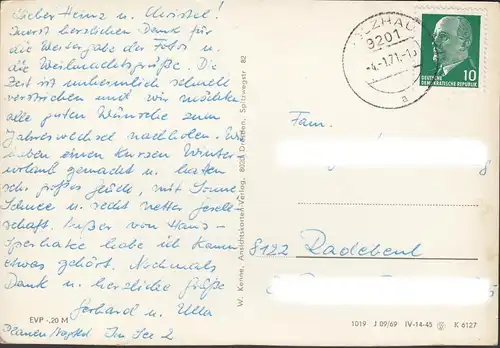 Lieber Heinz u. Christel!
Zuerst herzlichen Dank für
die Weitergabe der Fotos u.
die Weihnachtsgrüße. Die
Zeit ist unheimlich schnell
verstrichen und wir möchten
alle guten Wünsche zum
Jahreswechsel nachholen. Wir
haben einen kurzen Winter-
urlaub gemacht u. hatten
sehr großes Glück, mit Sonne
Schnee u. recht netter Gesell-
schaft. Außer von Hans-
habe ich kaum
etwas gehört. Nochmals
Dank u. herzliche Grüße
Gerhard u. Ulla
EVP -,20 M
Plauen/Vogtld
W. Kenne, Ansichtskarten-Verlag, 8028 Dresden, Spitzwegstr 82
LZHAU
9201
-4.-1.71.-1
a
DEUTSCHE
DEMOKRATISCHE REPUBLIK
10
Fam.
8122 Radebeul
1019 J 09/69 IV-14-45 K 6127